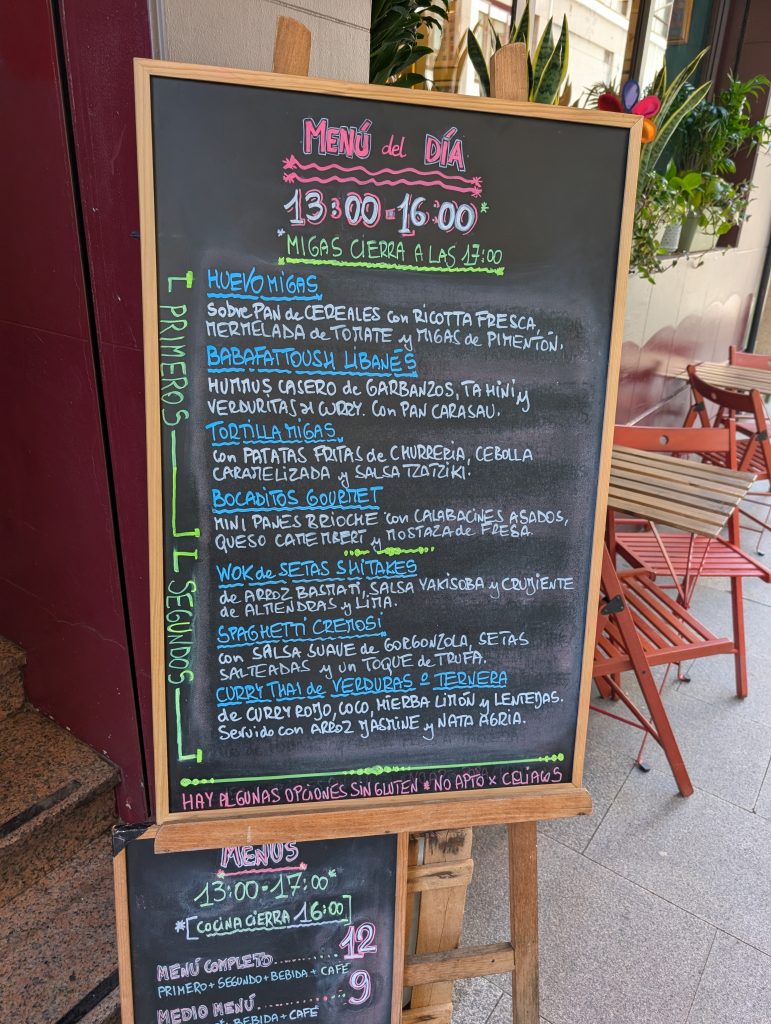 MENÚ del DÍA
13:00-16:00
*MIGAS CIERRA A LAS 17:00
PRIMEROS
HUEVOMIGAS
Sobre PAN de CEREALES con RICOTTA FRESCA,
MERMELADA de TOMATE y MIGAS de PIMENTÓN.
BABAFATTOUSH LIBANÉS
HUMMUS CASERO de GARBANZOS, TAHINI y
VERDURITAS al CURRY. Con PAN CARASAU.
TORTILLAMIGAS
con PATATAS FRITAS de CHURRERIA, CEBOLLA
CARAMELIZADA y SALSA TZATZIKI
BOCADITOS GOURMET
MINI PANES BRIOCHE con CALABACINES ASADOS,
QUESO CAMEMBERT y MOSTAZA de FRESA.
SEGUNDOS
WOK de SETAS SHITAKES
de ARROZ BASMATI, SALSA YAKISOBA y CRUJIENTE
de ALMENDRAS y LIMA.
SPAGHETTI CREMOSI
con SALSA SUAVE de GORGONZOLA, SETAS
SALTEADAS y UN TOQUE de TRUFA.
CURRY THAI de VERDURAS o TERNERA
de CURRY ROJO, COCO, HIERBA LIMÓN y LENTEJAS.
Servido con ARROZ JASMINE y NATA AGRIA.
HAY ALGUNAS OPCIONES SIN GLUTEN * NO APTO x CELIACOS
MENÚS
13:00-17:00
*[COCINA CIERRA 16:00]
MENÚ COMPLETO........12
PRIMERO+SEGUNDO+BEBIDA+CAFÉ
MEDIO MENÚ..........9
BEBIDA+CAFÉ